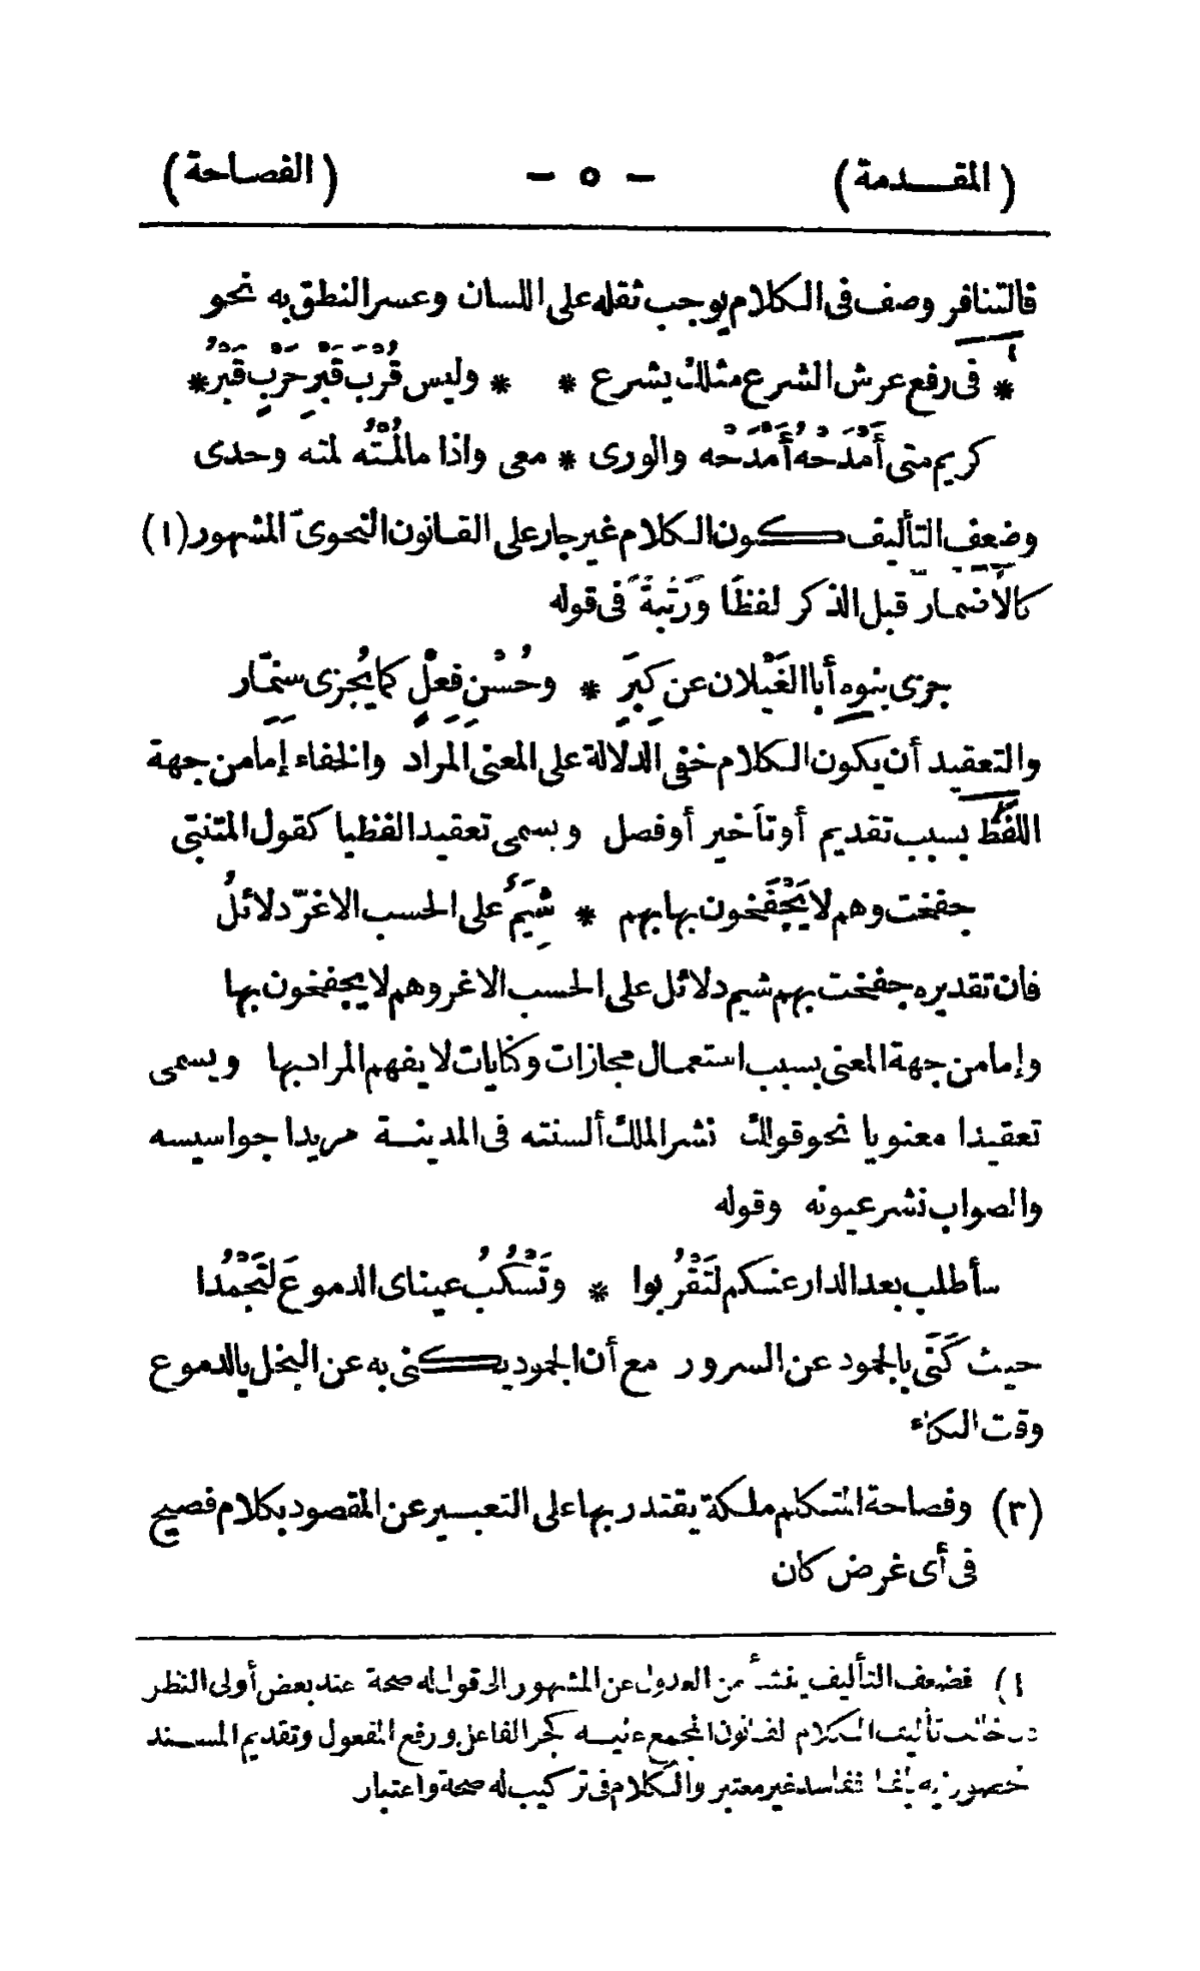 (المقدمة) - ٥ - (الفصاحة)
فالتنافر وصف فى الكلام يوجب ثقله على اللسان وعسر النطق به نحو
* فى رفع عرش الشرع مثلك يشرع * * وليس قُرْبَ قَبْرِ حَرْبٍ قَبْرُ *
كريم متى أَمْدَحْهُ أَمْدَحْه والورى * معى واذا مالُمْتُه لمته وحدى
وضعف التأليف كون الكلام غير جار على القانون النحوىّ المشهور (١)
كالأضمار قبل الذكر لفظًا وَرُتْبةً فى قوله
جزى بنوه أبا الغَيْلان عن كِبَرٍ * وحُسْنِ فِعلٍ كما يُجزى سنمّار
والتعقيد أن يكون الكلام خفى الدلالة على المعنى المراد والخفاء إما من جهة
اللفظ بسبب تقديم أو تأخير أو فصل ويسمى تعقيدا لفظيا كقول المتنبى
جفخت وهم لا يَجْفَخون بها بهم * شِيَمٌ على الحسب الاغرّ دلائلُ
فان تقديره جفخت بهم شيم دلائل على الحسب الاغر وهم لا يجفخون بها
وإما من جهة المعنى بسبب استعمال مجازات وكنايات لا يفهم المراد بها ويسمى
تعقيدا معنويا نحو قولك نشر الملك ألسنته فى المدينة مريدا جواسيسه
والصواب نشر عيونه وقوله
سأطلب بعد الدار عنكم لتَقْرُبوا * وتَسْكُبُ عيناى الدموعَ لتَجْمُدا
حيث كَنَى بالجمود عن السرور مع أن الجمود يكنى به عن البخل بالدموع
وقت البكاء
(٣) وفصاحة المتكلم ملكة يقتدر بها على التعبير عن المقصود بكلام فصيح
فى أى غرض كان
١) فضعف التأليف ينشأ من العدول عن المشهور الى قول له صحة عند بعض أولى النظر
تأليف الكلام لقانون المجمع عليه كجر الفاعل ورفع المفعول وتقديم المسند
غير معتبر والكلام فى تركيب له صحة واعتبار